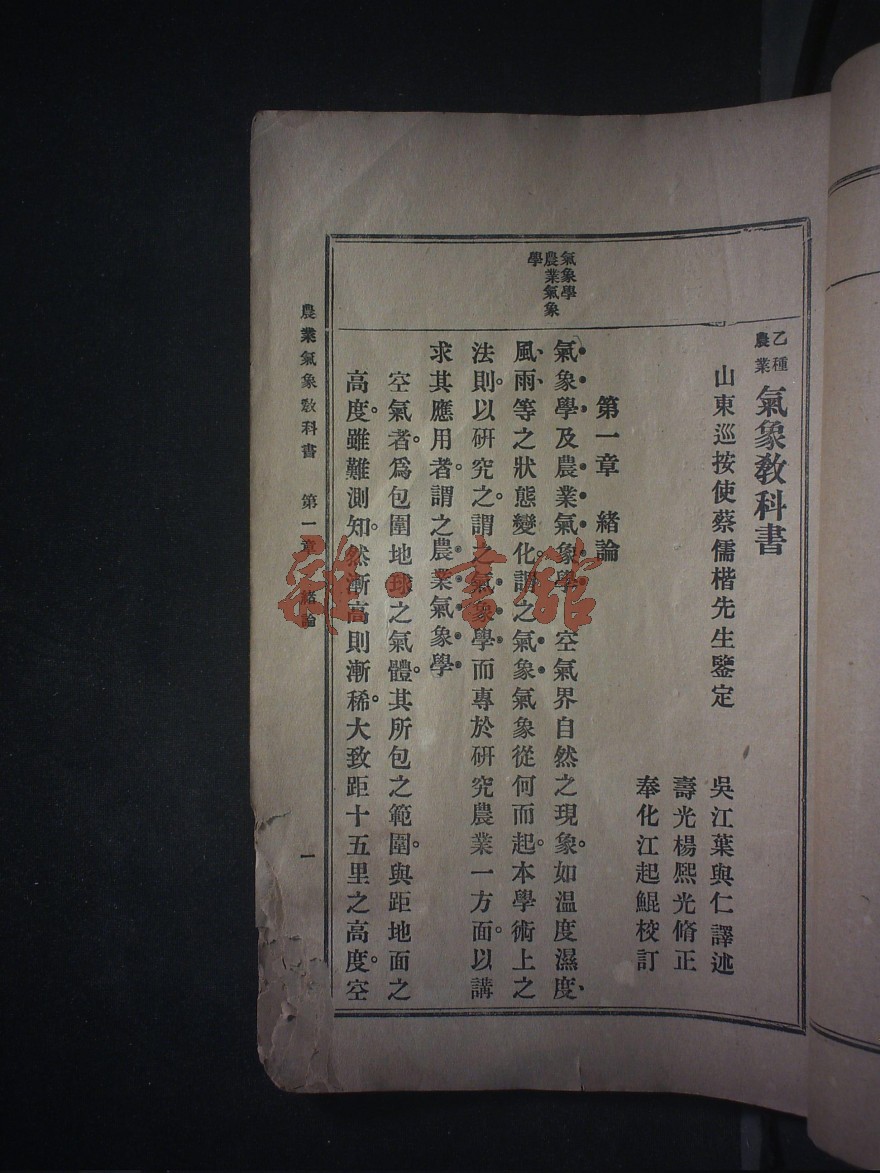 乙種
農業
氣象敎科書
山東巡按使蔡儒楷先生鑒定
吳江葉與仁譯述
壽光楊熙光脩正
奉化江起鯤校訂
第一章 緒論
氣象學
農業氣象
學
氣象學及農業氣象學 空氣界自然之現象。如温度濕度、
風、雨、等之狀態變化。謂之氣象。氣象從何而起。本學術上之
法則。以研究之。謂之氣象學。而專於研究農業一方面。以講
求其應用者。謂之農業氣象學。
空氣者。爲包圍地球之氣體。其所包之範圍。與距地面之
高度。雖難測知。然漸高則漸稀。大致距十五里之高度。空
農業氣象敎科書 第一章 緒論
一
雜·書館